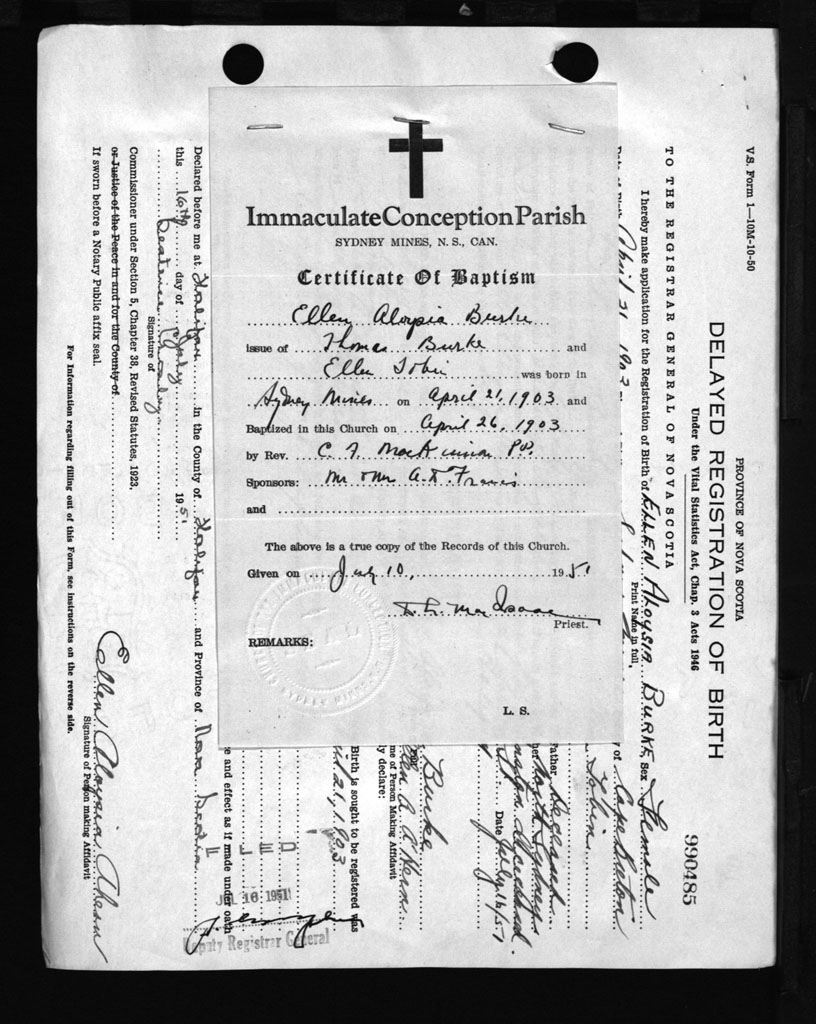 Immaculate Conception Parish
SYDNEY MINES, N. S., CAN.
Certificate Of Baptism
Ellen Aloysia Burke
issue of Thomas Burke and
Ellen Tobin was born in
Sydney Mines on April 21, 1903 and
Baptized in this Church on April 26, 1903
by Rev. C. F. MacKinnon P.P.
Sponsors: Mr & Mrs A. D. Francis
and
The above is a true copy of the Records of this Church.
Given on July 10, 1951
MacIsaac
Priest.
REMARKS:
L. S.
V.S. Form 1—10M-10-50
PROVINCE OF NOVA SCOTIA
DELAYED REGISTRATION OF BIRTH
990485
Under the Vital Statistics Act, Chap. 3 Acts 1946
TO THE REGISTRAR GENERAL OF NOVA SCOTIA
I hereby make application for the Registration of Birth of ELLEN ALOYSIA BURKE Sex Female
Print Name in full,
April 21 1903 of Cape Breton
Tobin
Father Deceased
North Sydney
Deceased
Date July 16/51
Burke
Ellen A. A'Hern
me of Person Making Affidavit
ly declare:
Birth is sought to be registered was
21, 1903
e and effect as if made under oath
Declared before me at Halifax in the County of Halifax and Province of Nova Scotia
this 16th day of July 1951
Signature of
Commissioner under Section 5, Chapter 38, Revised Statutes, 1923.
or Justice of the Peace in and for the County of
If sworn before a Notary Public affix seal.
Ellen Aloysia Ahern
Signature of Person making Affidavit
For Information regarding filling out of this Form, see instructions on the reverse side.
FILED
JUL 16 1951
Deputy Registrar General